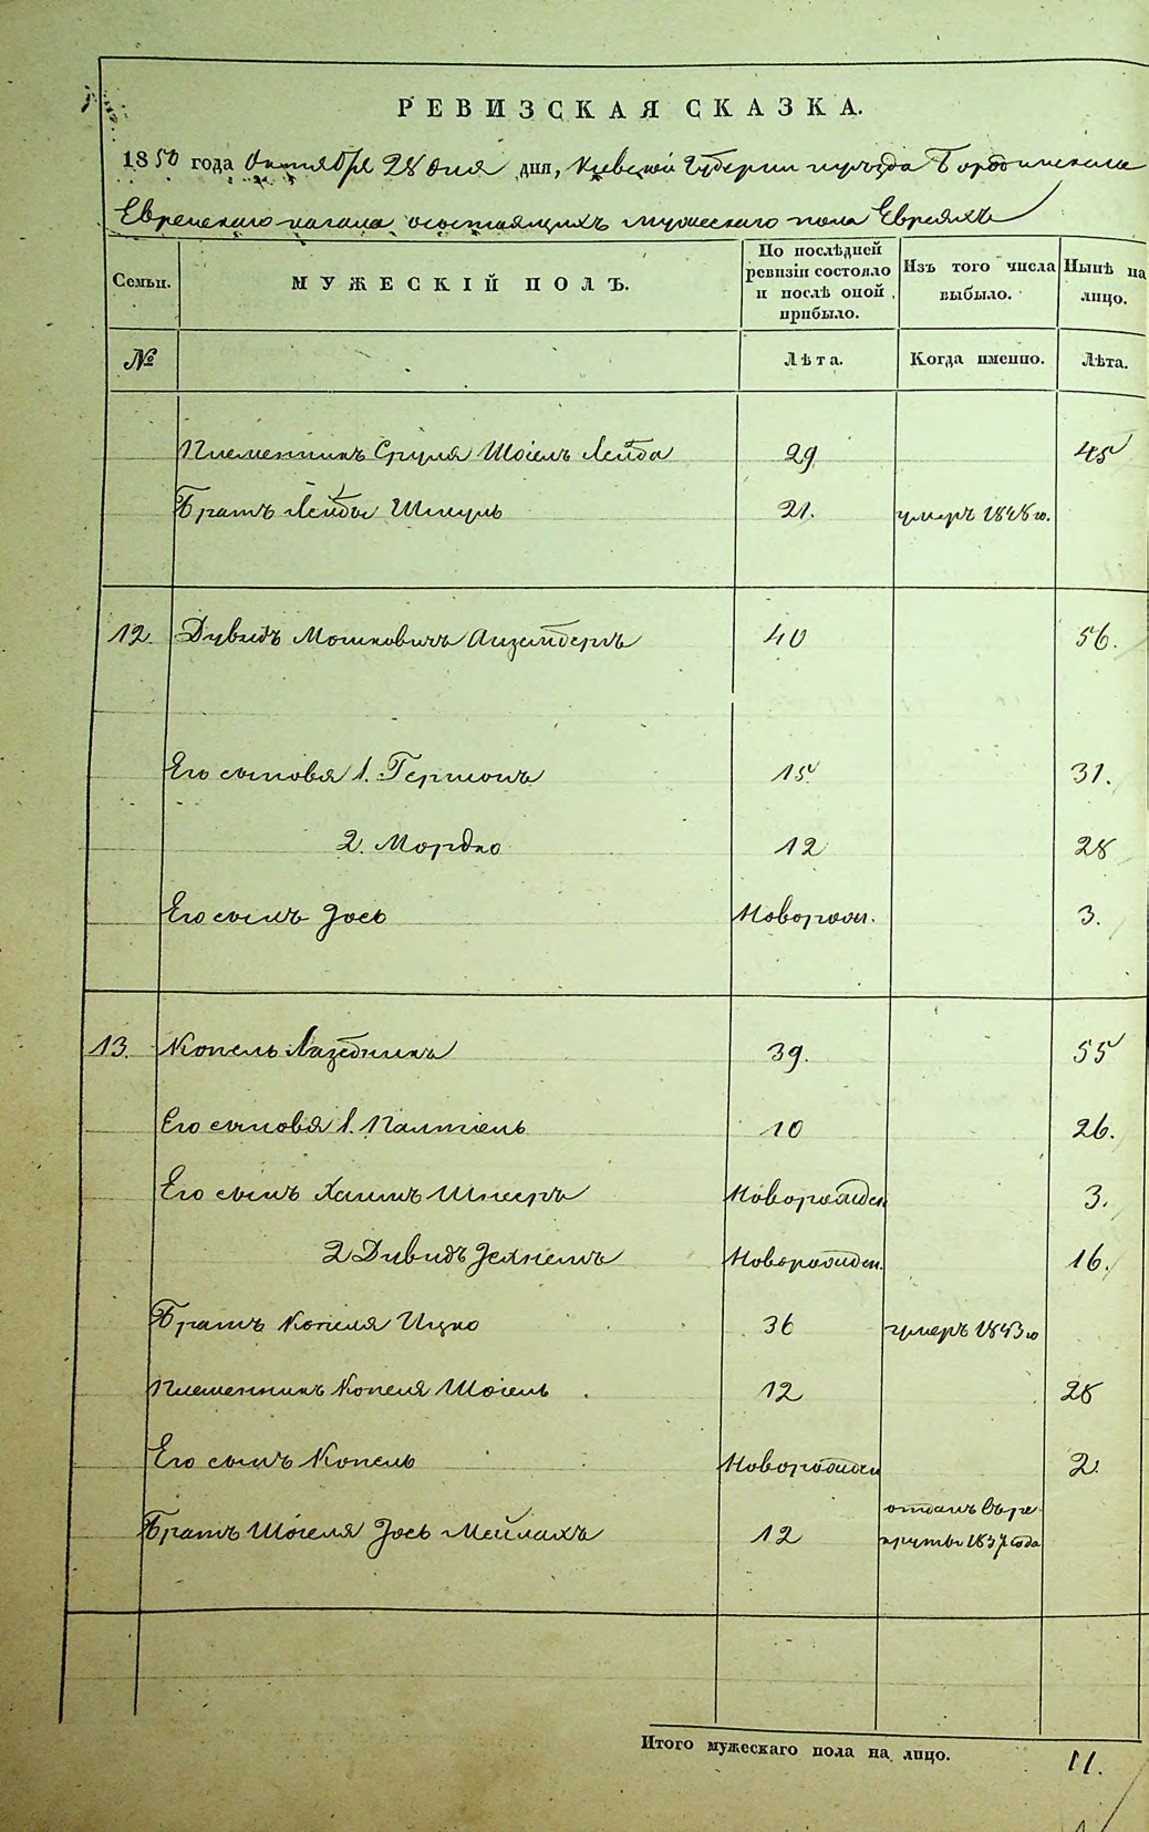 РЕВИЗСКАЯ СКАЗКА.
1850 года Октября 28 дня дня, Киевской Губернии
Еврейскаго кагала, о состоящихъ мужескаго пола Евреяхъ
Семьи.
МУЖЕСКІЙ ПОЛЪ.
По послѣдней ревизіи состояло и послѣ оной прибыло.
Изъ того числа выбыло.
Нынѣ на лицо.
№
Лѣта.
Когда именно.
Лѣта.
Племенникъ Сруля Шоіелъ Лейба 29 45
Братъ Лейбы Шмуль 21. умеръ 1848 го.
12. Дувидъ Мошковичъ 40 56.
Его сыновя 1. Гершонъ 15 31.
2. Мордко 12 28
Его сынъ Іось Новорожд. 3.
13. Копель Лазебникъ 39. 55
Его сыновя 1. Палтіель 10 26.
Его сынъ Хаимъ Шнееръ Новорожден 3.
2 Дувидъ Новорожден. 16.
Братъ Копеля Ицко 36 умеръ 1843 го
Племенникъ Копеля Шоіель 12 28
Его сынъ Копель Новорожден 2.
Братъ Шоіеля Іось Мейлахъ 12 отданъ въ ре-
круты 1837 года
Итого мужескаго пола на лицо. 11.